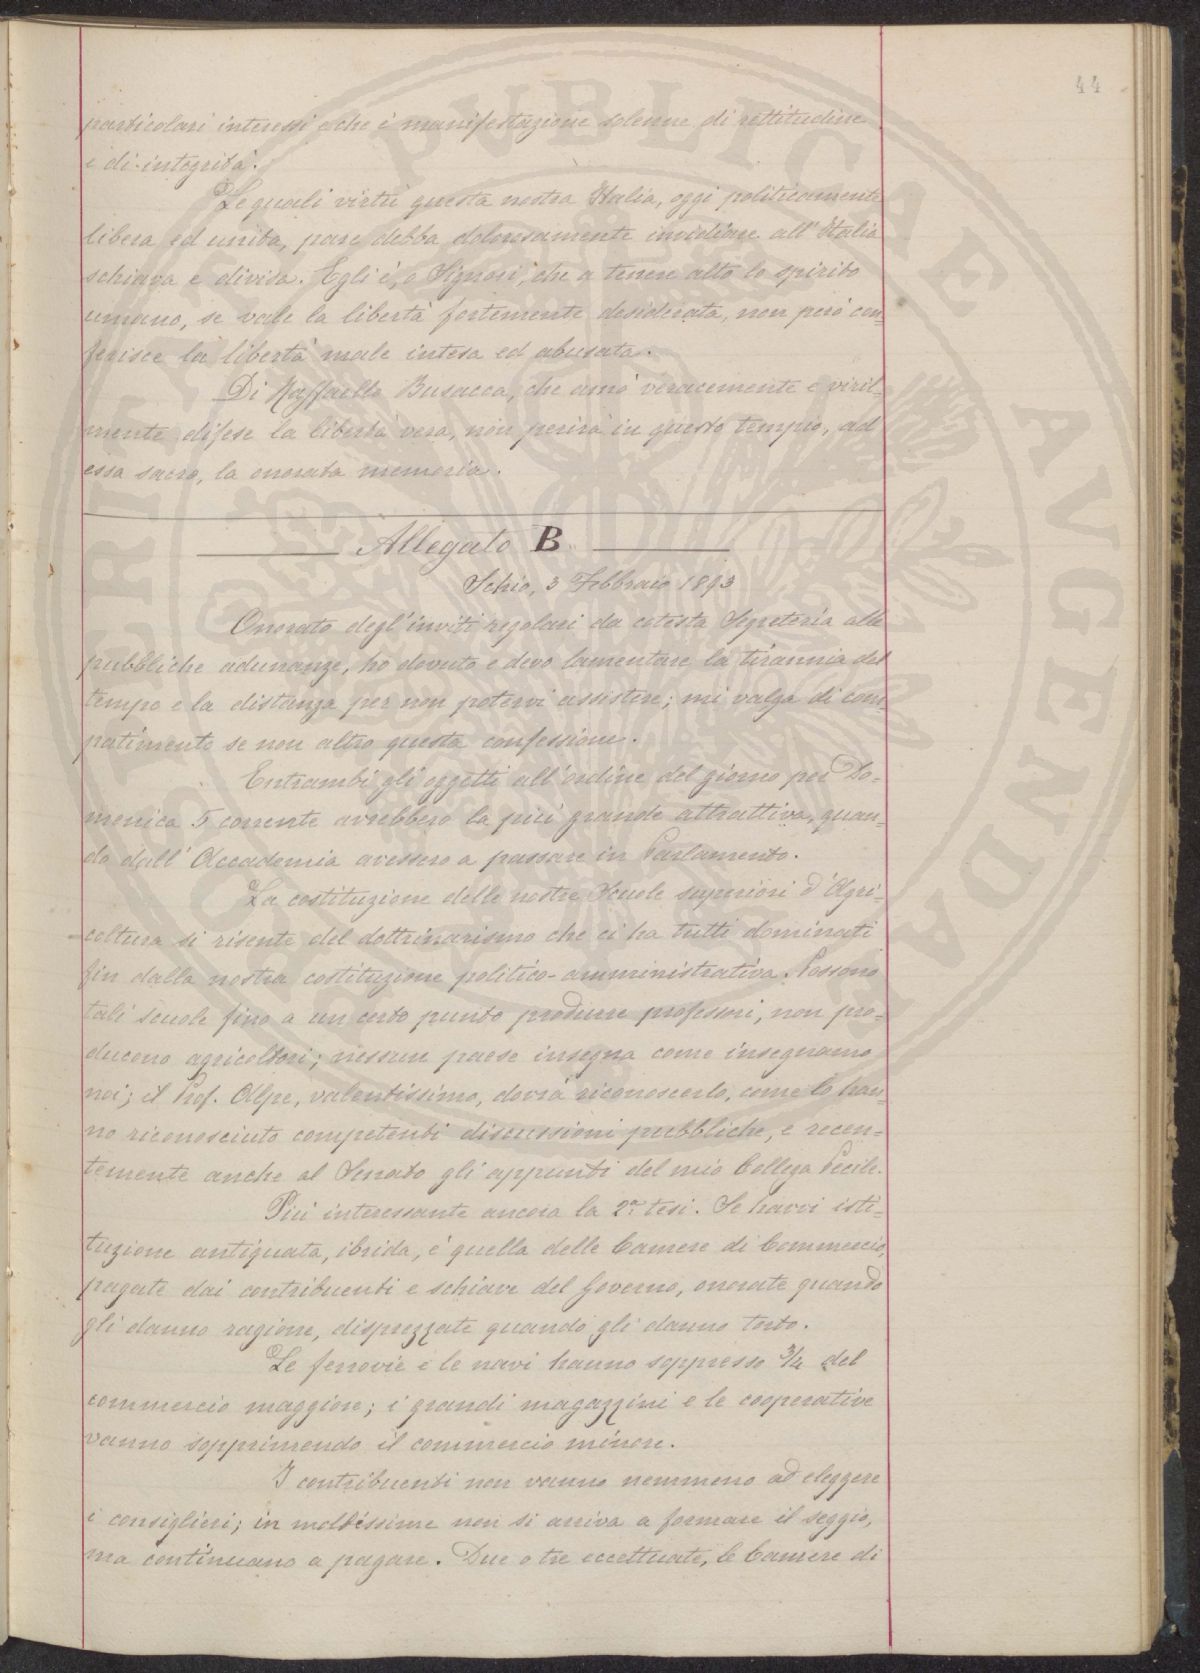 44
particolari interessi e che è manifestazione solenne di rettitudine
e di integrità.
Le quali virtù questa nostra Italia, oggi politicamente
libera ed unita, pare debba dolorosamente invidiare all'Italia
schiava e divisa. Egli è, o Signori, che a tenere alto lo spirito
umano, se vale la libertà fortemente desiderata, non però con=
ferisce la libertà male intesa ed abusata.
Di Raffaello Busacca, che amò veracemente e viril=
mente difese la libertà vera, non perirà in questo tempio, ad
essa sacro, la onorata memoria.
Allegato B
Schio, 3 Febbraio 1893
Onorato degl'inviti regolari da cotesta Segreteria alle
pubbliche adunanze, ho dovuto e devo lamentare la tirannia del
tempo e la distanza per non potervi assistere; mi valga di com=
patimento se non altro questa confessione.
Entrambi gli oggetti all'ordine del giorno per Do=
menica 5 corrente avrebbero la più grande attrattiva, quan=
do dall'Accademia avessero a passare in Parlamento.
La costituzione delle nostre Scuole superiori d'Agri=
coltura si risente del dottrinarismo che ci ha tutti dominati
fin dalla nostra costituzione politico-amministrativa. Possono
tali scuole fino a un certo punto produrre professori, non pro=
ducono agricoltori; nessun paese insegna come insegnamo
noi; il Prof. Alpe, valentissimo, dovrà riconoscerlo, come lo han=
no riconosciuto competenti discussioni pubbliche, e recen=
temente anche al Senato gli appunti del mio Collega Pecile.
Più interessante ancora la 2a tesi. Se havvi isti=
tuzione antiquata, ibrida, è quella delle Camere di Commercio,
pagate dai contribuenti e schiave del Governo, onorate quando
gli danno ragione, disprezzate quando gli danno torto.
Le ferrovie e le navi hanno soppresso 3/4 del
commercio maggiore; i grandi magazzini e le cooperative
vanno sopprimendo il commercio minore.
I contribuenti non vanno nemmeno ad eleggere
i consiglieri; in moltissime non si arriva a formare il seggio,
ma continuano a pagare. Due o tre eccettuate, le Camere di